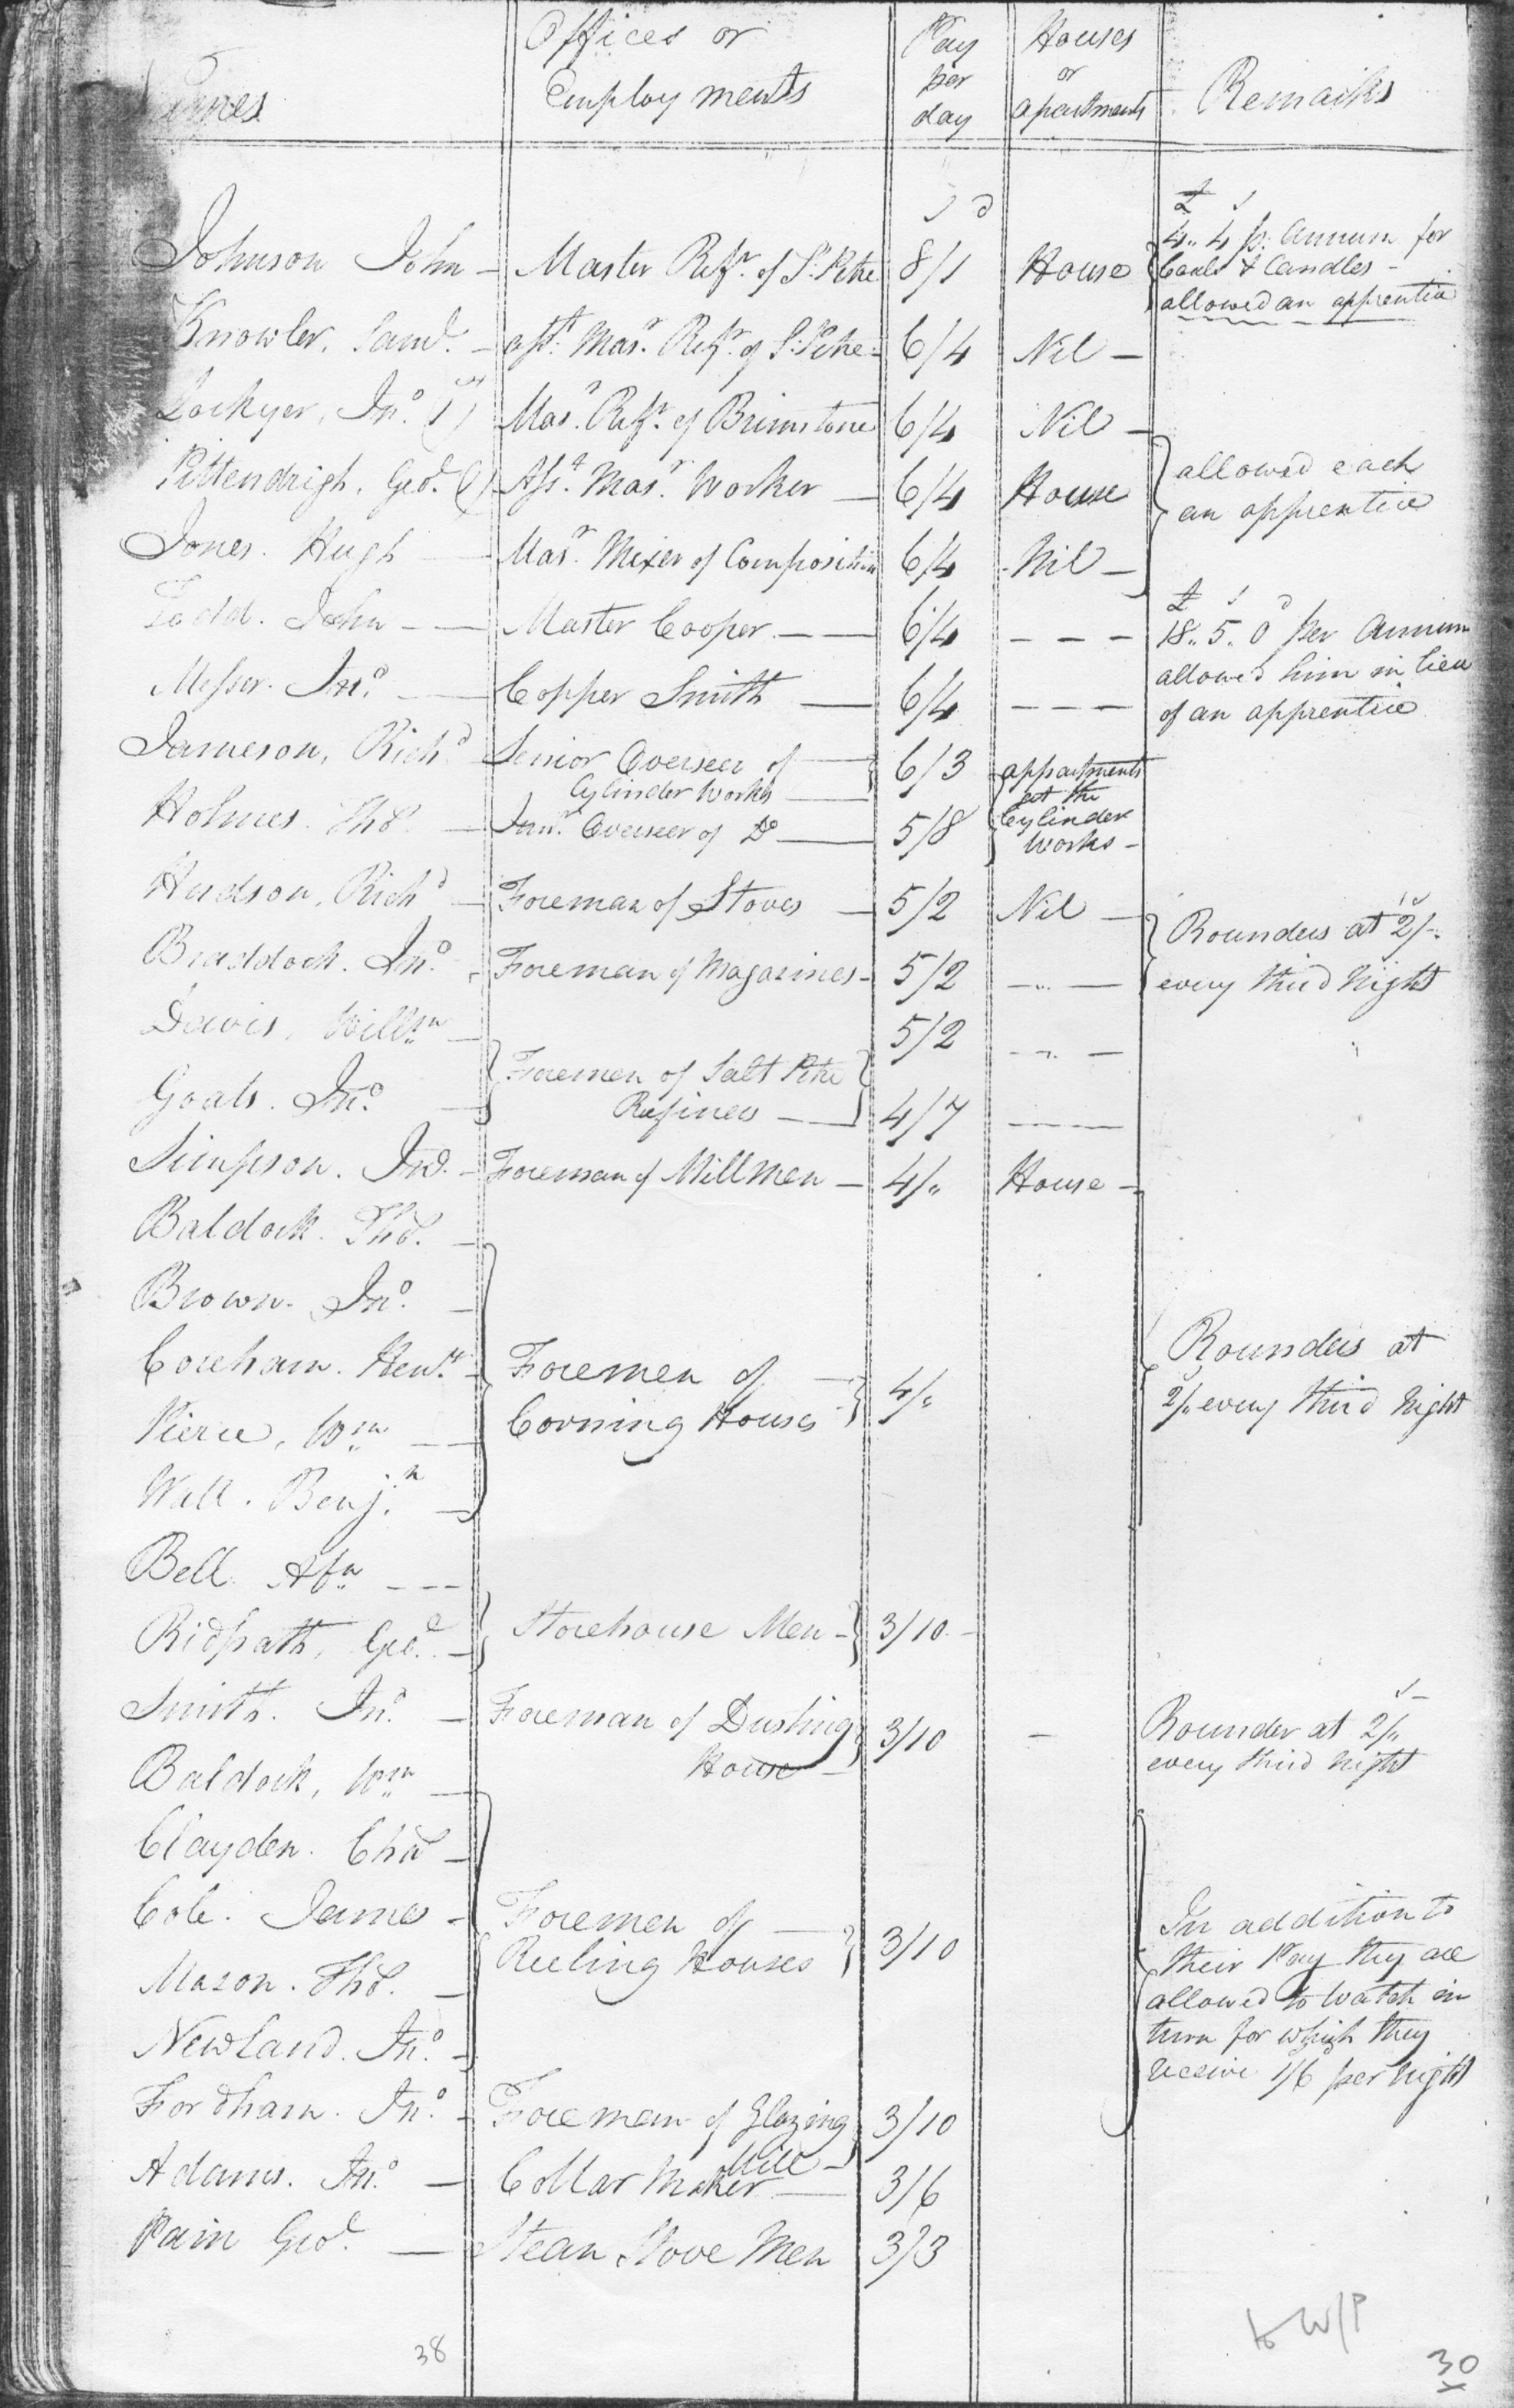 Names Offices or Employments Pay per day Houses or apartments Remarks
s d
£ s
4.. 4 p: Annum for
Johnson John – Master Refr. of St. Petre 8/1 House Coals & Candles –
allowed an apprentice
Knowler. Saml. – asst. Masr. Refr. of St. Petre – 6/4 Nil –
Lockyer, Jno. (1) Masr. Refr. of Brimstone 6/4 Nil –
Pittendrigh. Geoe. () Asst. Masr. Worker – 6/4 House allowed each
an apprentice
Jones. Hugh – Masr. Mixer of Composition 6/4 Nil –
£ s d
Todd. John – – Master Cooper. – – 6/4 – – – 18.. 5.. 0 per Annum
allowed him in lieu
Messer. Jno. – Copper Smith – 6/4 – – – of an apprentice
Jameson, Richd. Senior Overseer of – 6/3 appartments
Cylinder Works – at the
Holmes. Thos. – Junr. Overseer of Do – 5/8 Cylinder
Works –
Hudson, Richd – Foreman of Stoves – 5/2 Nil – Rounders at 2/-
Braddock. Jno. – Foreman of Magazines – 5/2 – " – every third night
Davis, Willm – 5/2 – " –
Foremen of Salt Petre
Goats. Jno. – Refiners – 4/7 – – –
Simpson. Jno. – Foreman of Millmen – 4/" House –
Baldock. Thos. –
Brown. Jno. –
Coreham. Henry – Foremen of – 4/" Rounders at
Pierce, Wm – Corning Houses 2/" every third night
Wall. Benjn. –
Bell. Abm – – –
Ridpath, Geoe. – Storehouse Men – 3/10 –
Smith. Jno. – Foreman of Dusting 3/10 – Rounder at 2/"
House – every third night
Baldock, Wm –
Clayden. Chas –
Cole. James – Foremen of – 3/10 In addition to
Reeling Houses their Pay they are
Mason. Thos. – allowed to Watch in
turn for which they
Newland. Jno. – receive 1/6 per night
Fordham. Jno. – Foreman of Glazing 3/10
Mill –
Adams. Jno. – Collar Maker – 3/6
Pain Geoe. – Stean Stove Men 3/3
to W/P
38
30